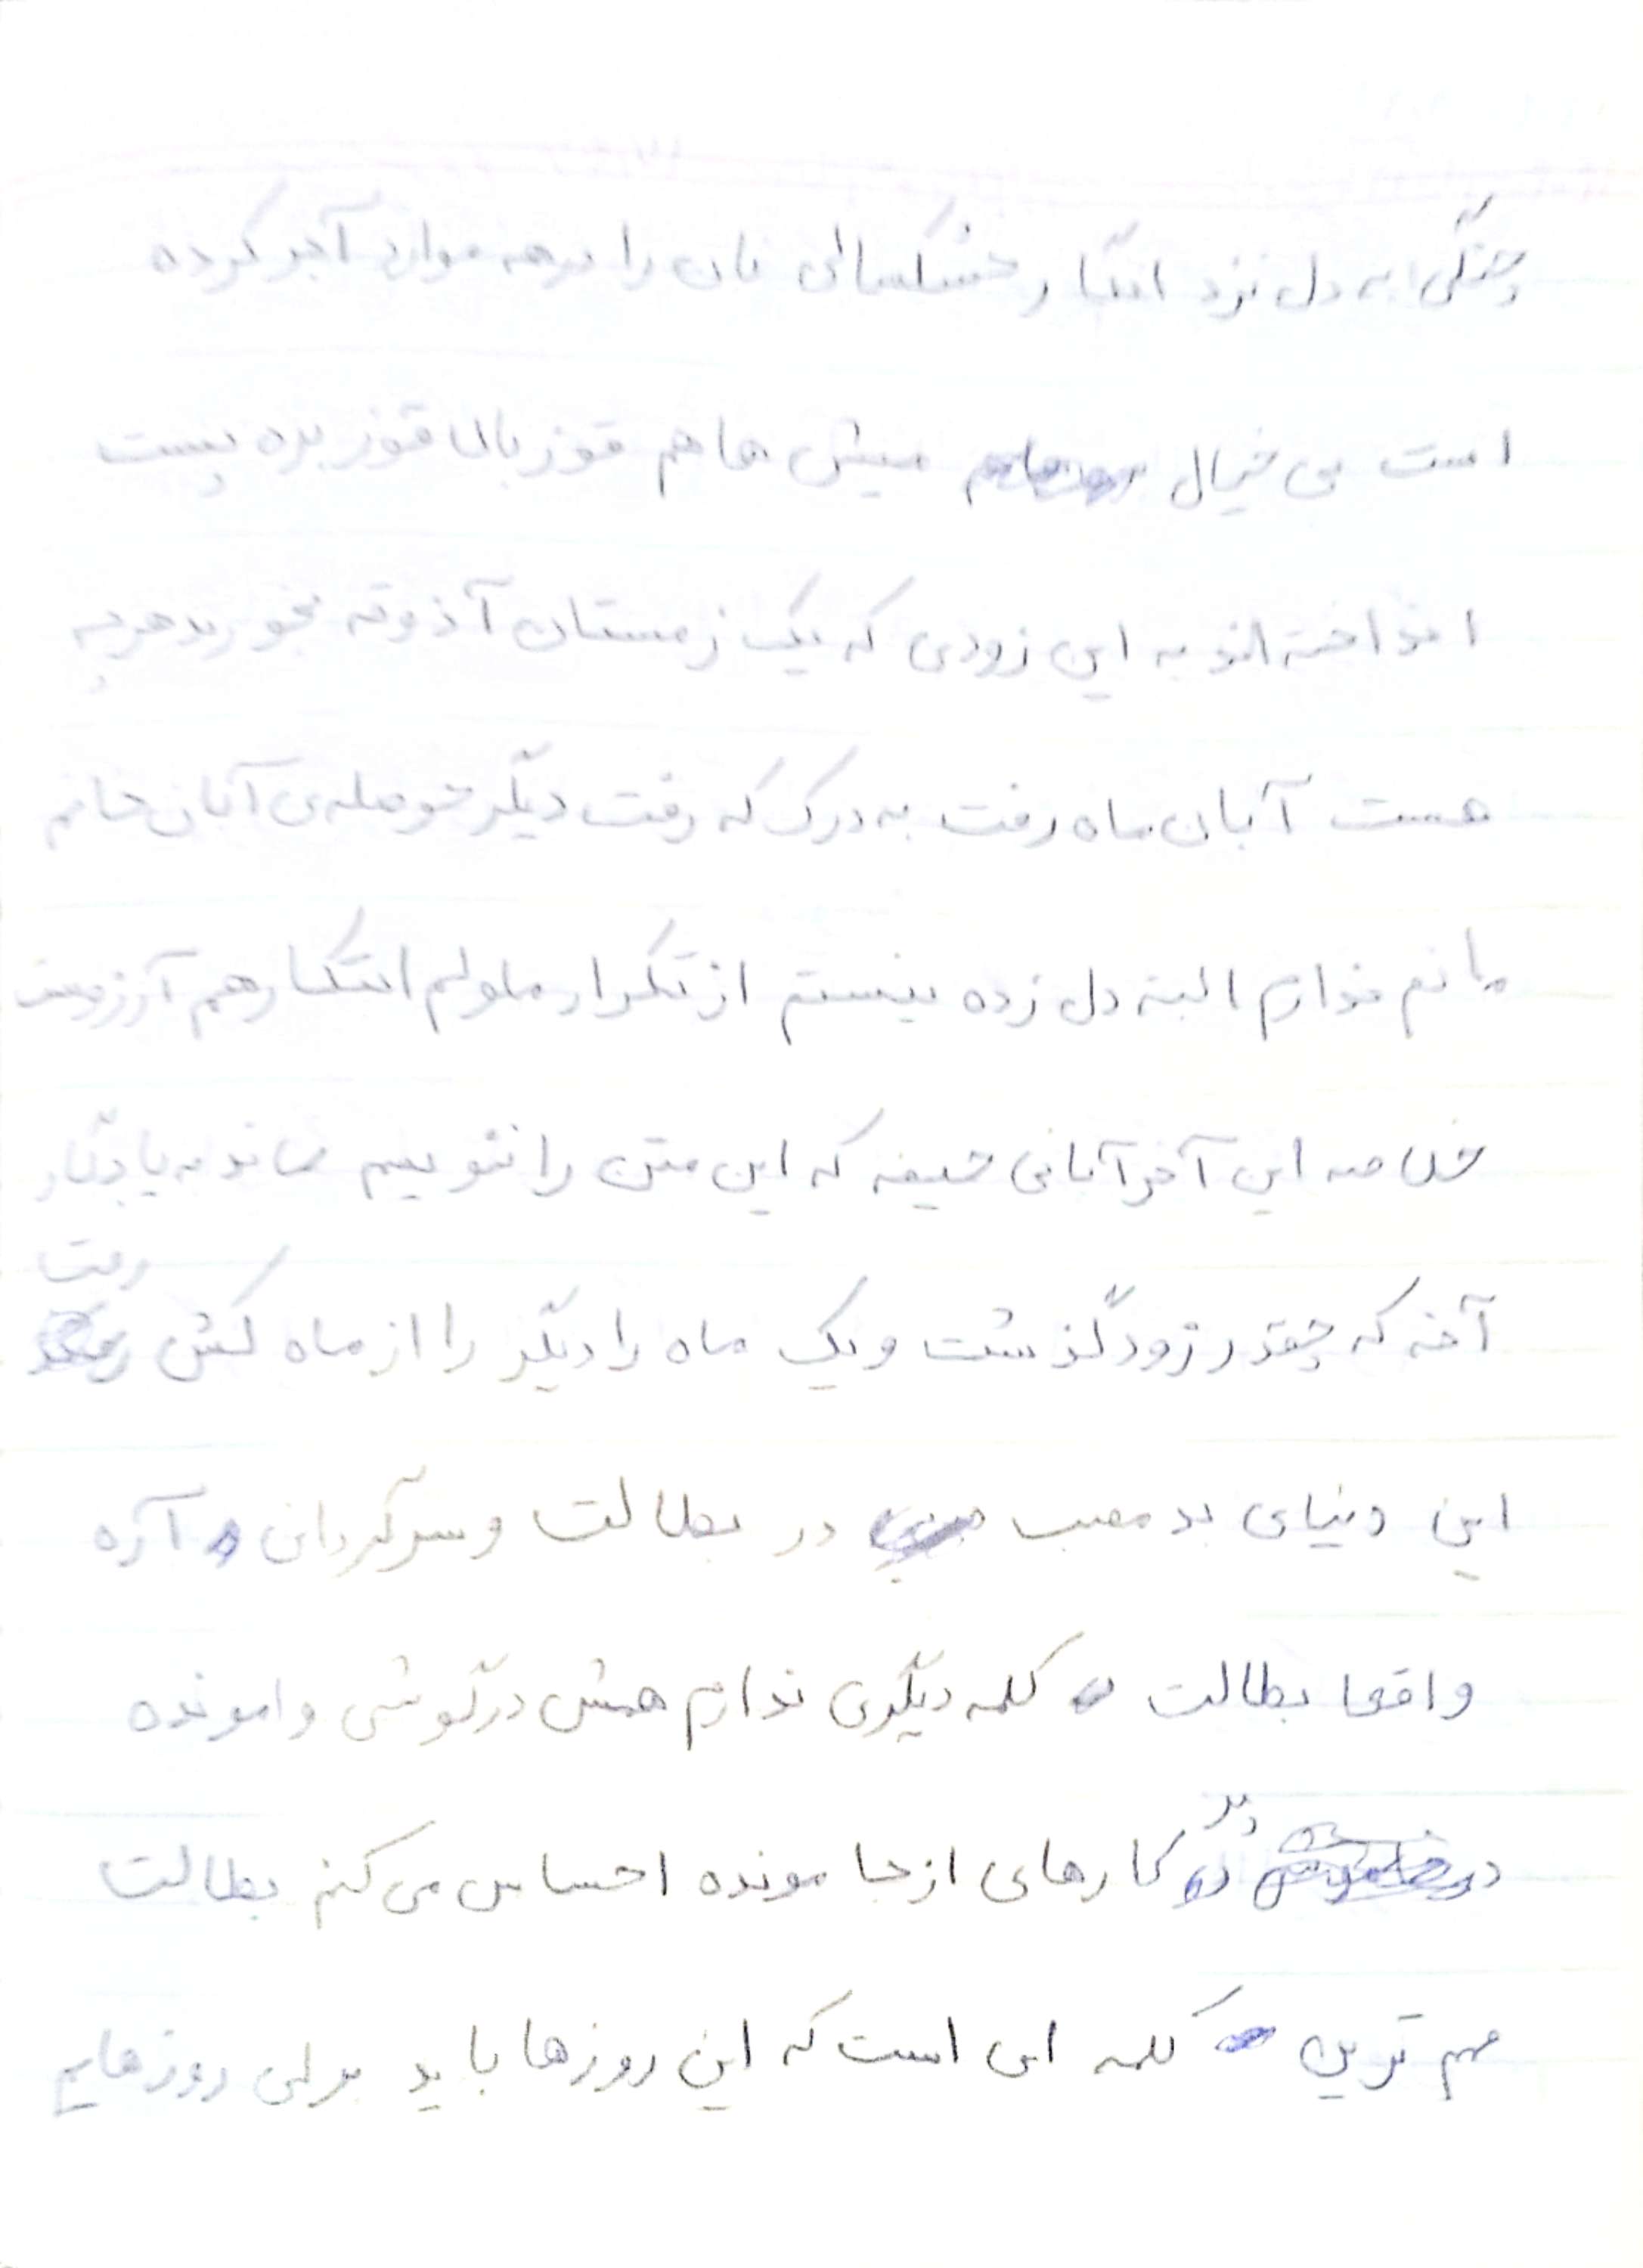 چنگی به دل نزد انگار خشکسالی نان را در همه موارد آجر کرده
است بی خیال میش ها هم قوز بالا قوز بره پست
انداخته اند به این زودی که یک زمستان آذوقه بخورند هر چه
هست آبان ماه رفت به درک که رفت دیگر حوصله‌ی آبان خانم
مانم ندارم البته دل زده نیستم از تکرار ملولم ابتکار هم آرزوست
خلاصه این آخر آبانی حیفه که این متن را ننویسم بماند به یادگار
آخه که چقدر زود گذشت و یک ماه را دیگر را از ماه کش رفت
این دنیای بد مصب در بطالت و سرگردانی آره
واقعا بطالت کلمه دیگری ندارم همش در گوشی وامونده
در کارهای از جا مونده احساس می کنم بطالت
مهم ترین کلمه ای است که این روزها باید برای روزهایم